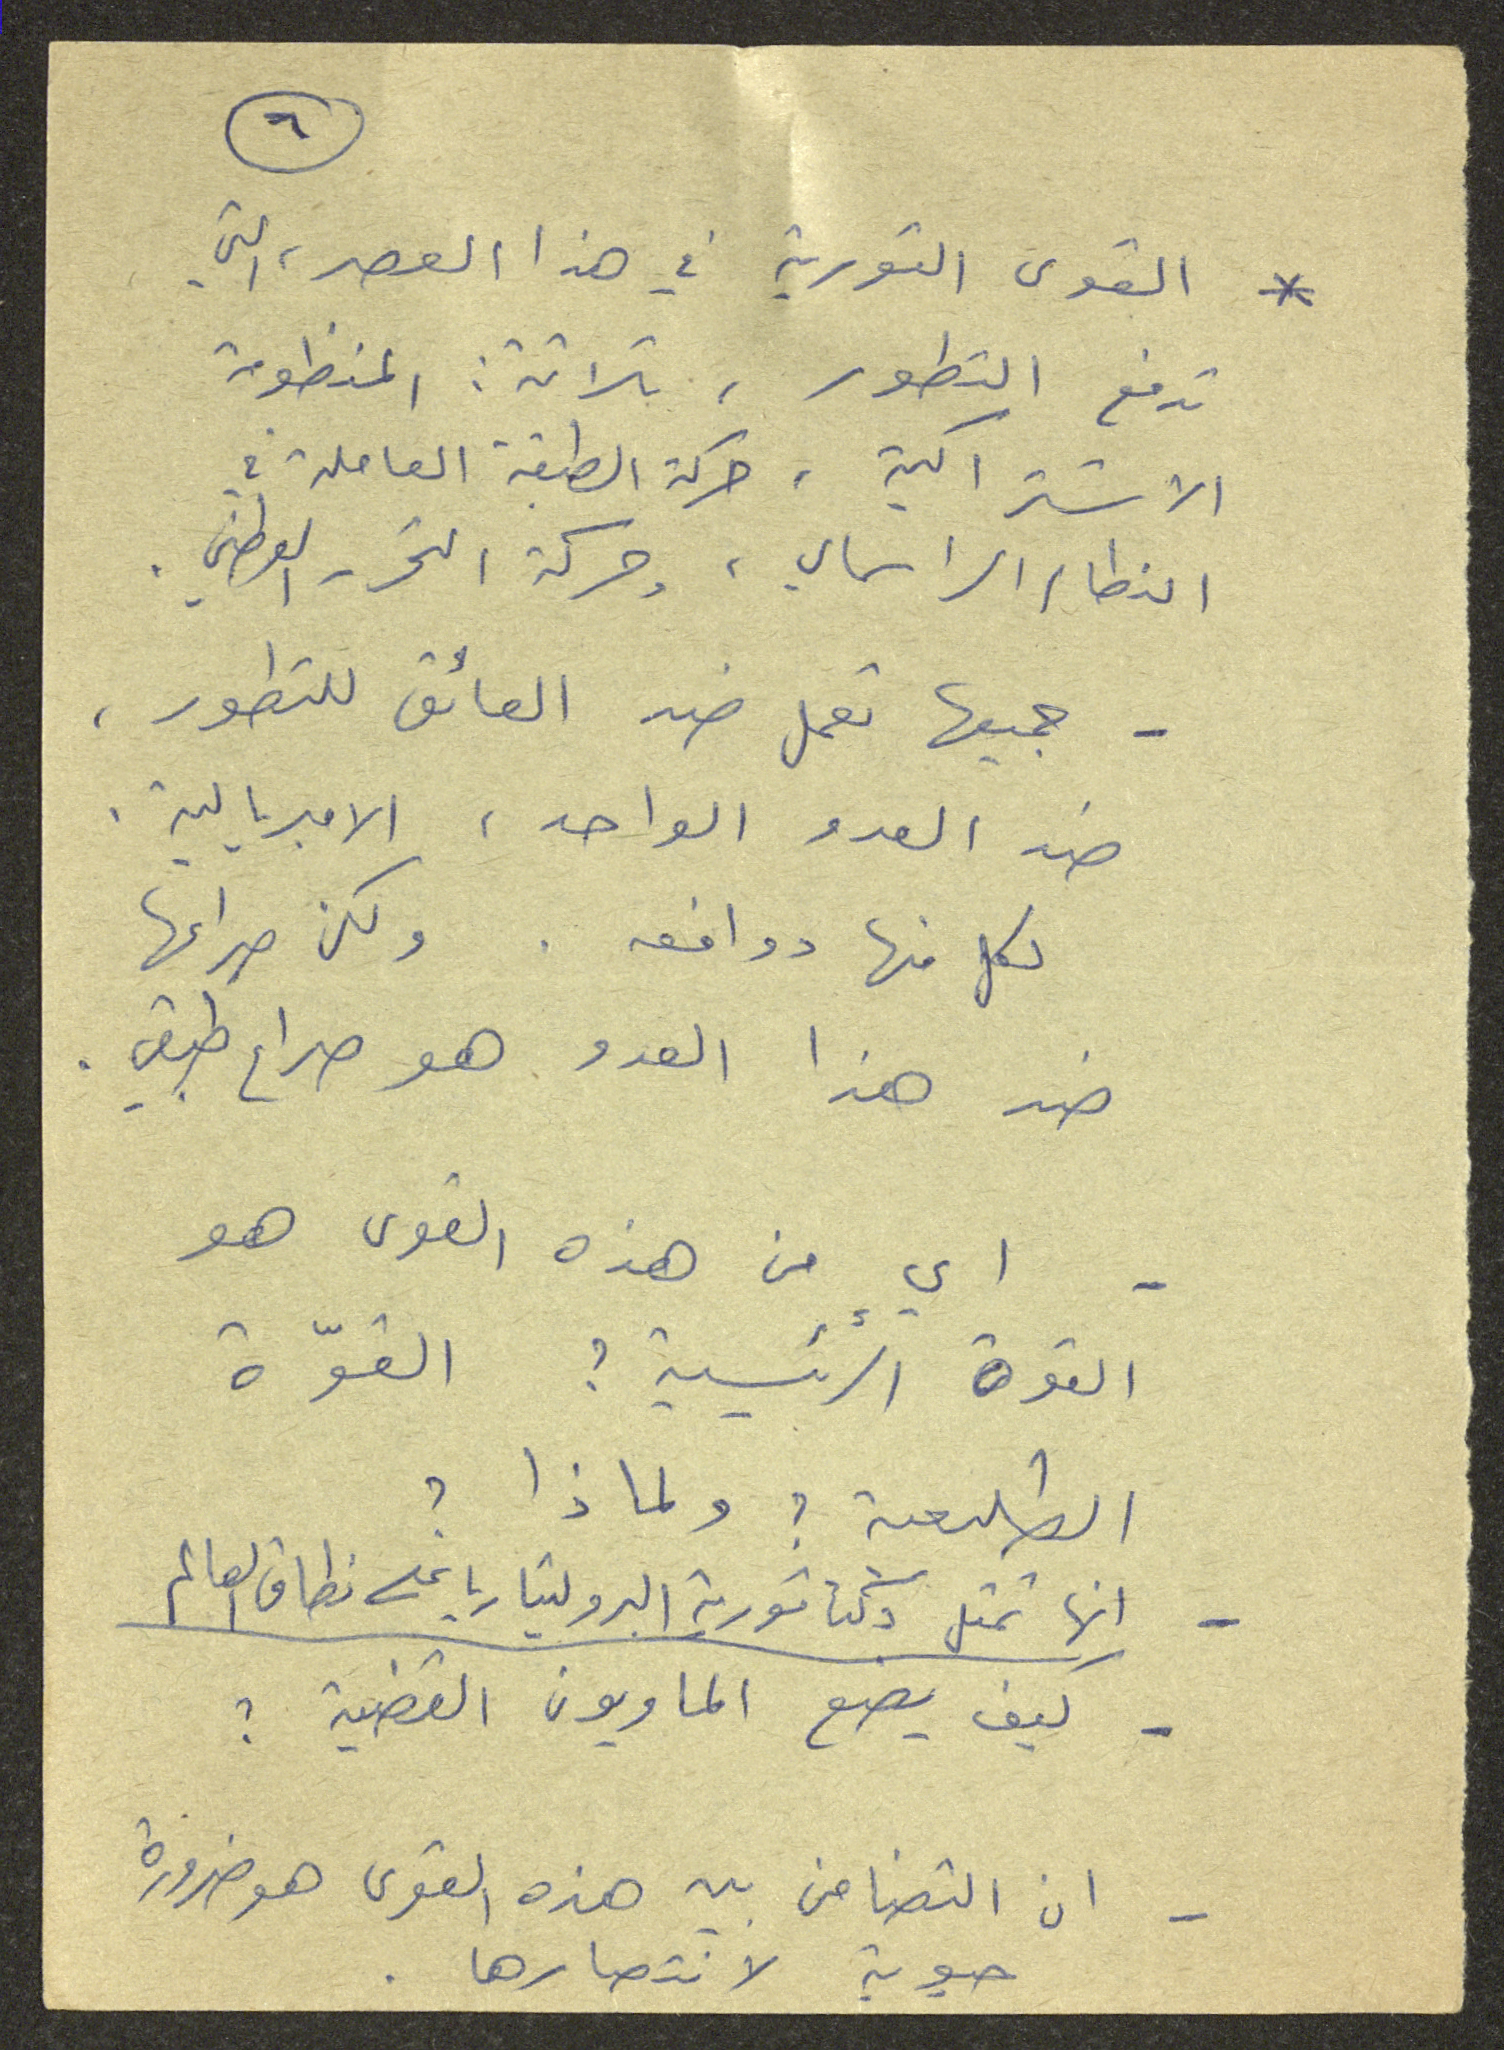 ٦
* القوى الثورية في هذا العصر، التي
تدفع التطور ، ثلاثة : المنظومة
الاشتراكية ، حركة الطبقة العاملة في
النظام الراسمالي ، وحركة التحرر الوطني .
- جميعها تعمل ضد العائق للتطور ،
ضد العدو الواحد ، الامبريالية .
لكل منها دوافعه . ولكن صراعها
ضد هذا العدو هو صراع طبقي .
- اي من هذه القوى هو
القوة الرئيسية ؟ القوّة
الطليعية ؟ ولماذا ؟
- انها تمثل دكتاتورية البروليتاريا على نطاق العالم
- كيف يضع الماويون القضية ؟
- ان التضامن بين هذه القوى هو ضرورة
حيوية لانتصارها .